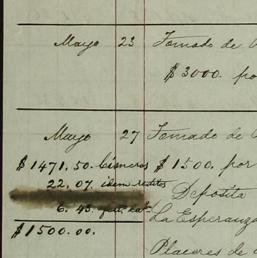 Mayo 23 Tomado de
$3000. po
Mayo 27 Tomado de
$1471.50. Cisneros $1500. por
22.07. idem reditos
Deposita
6.43.
La Esperanza
$1500.00.
Placeres de